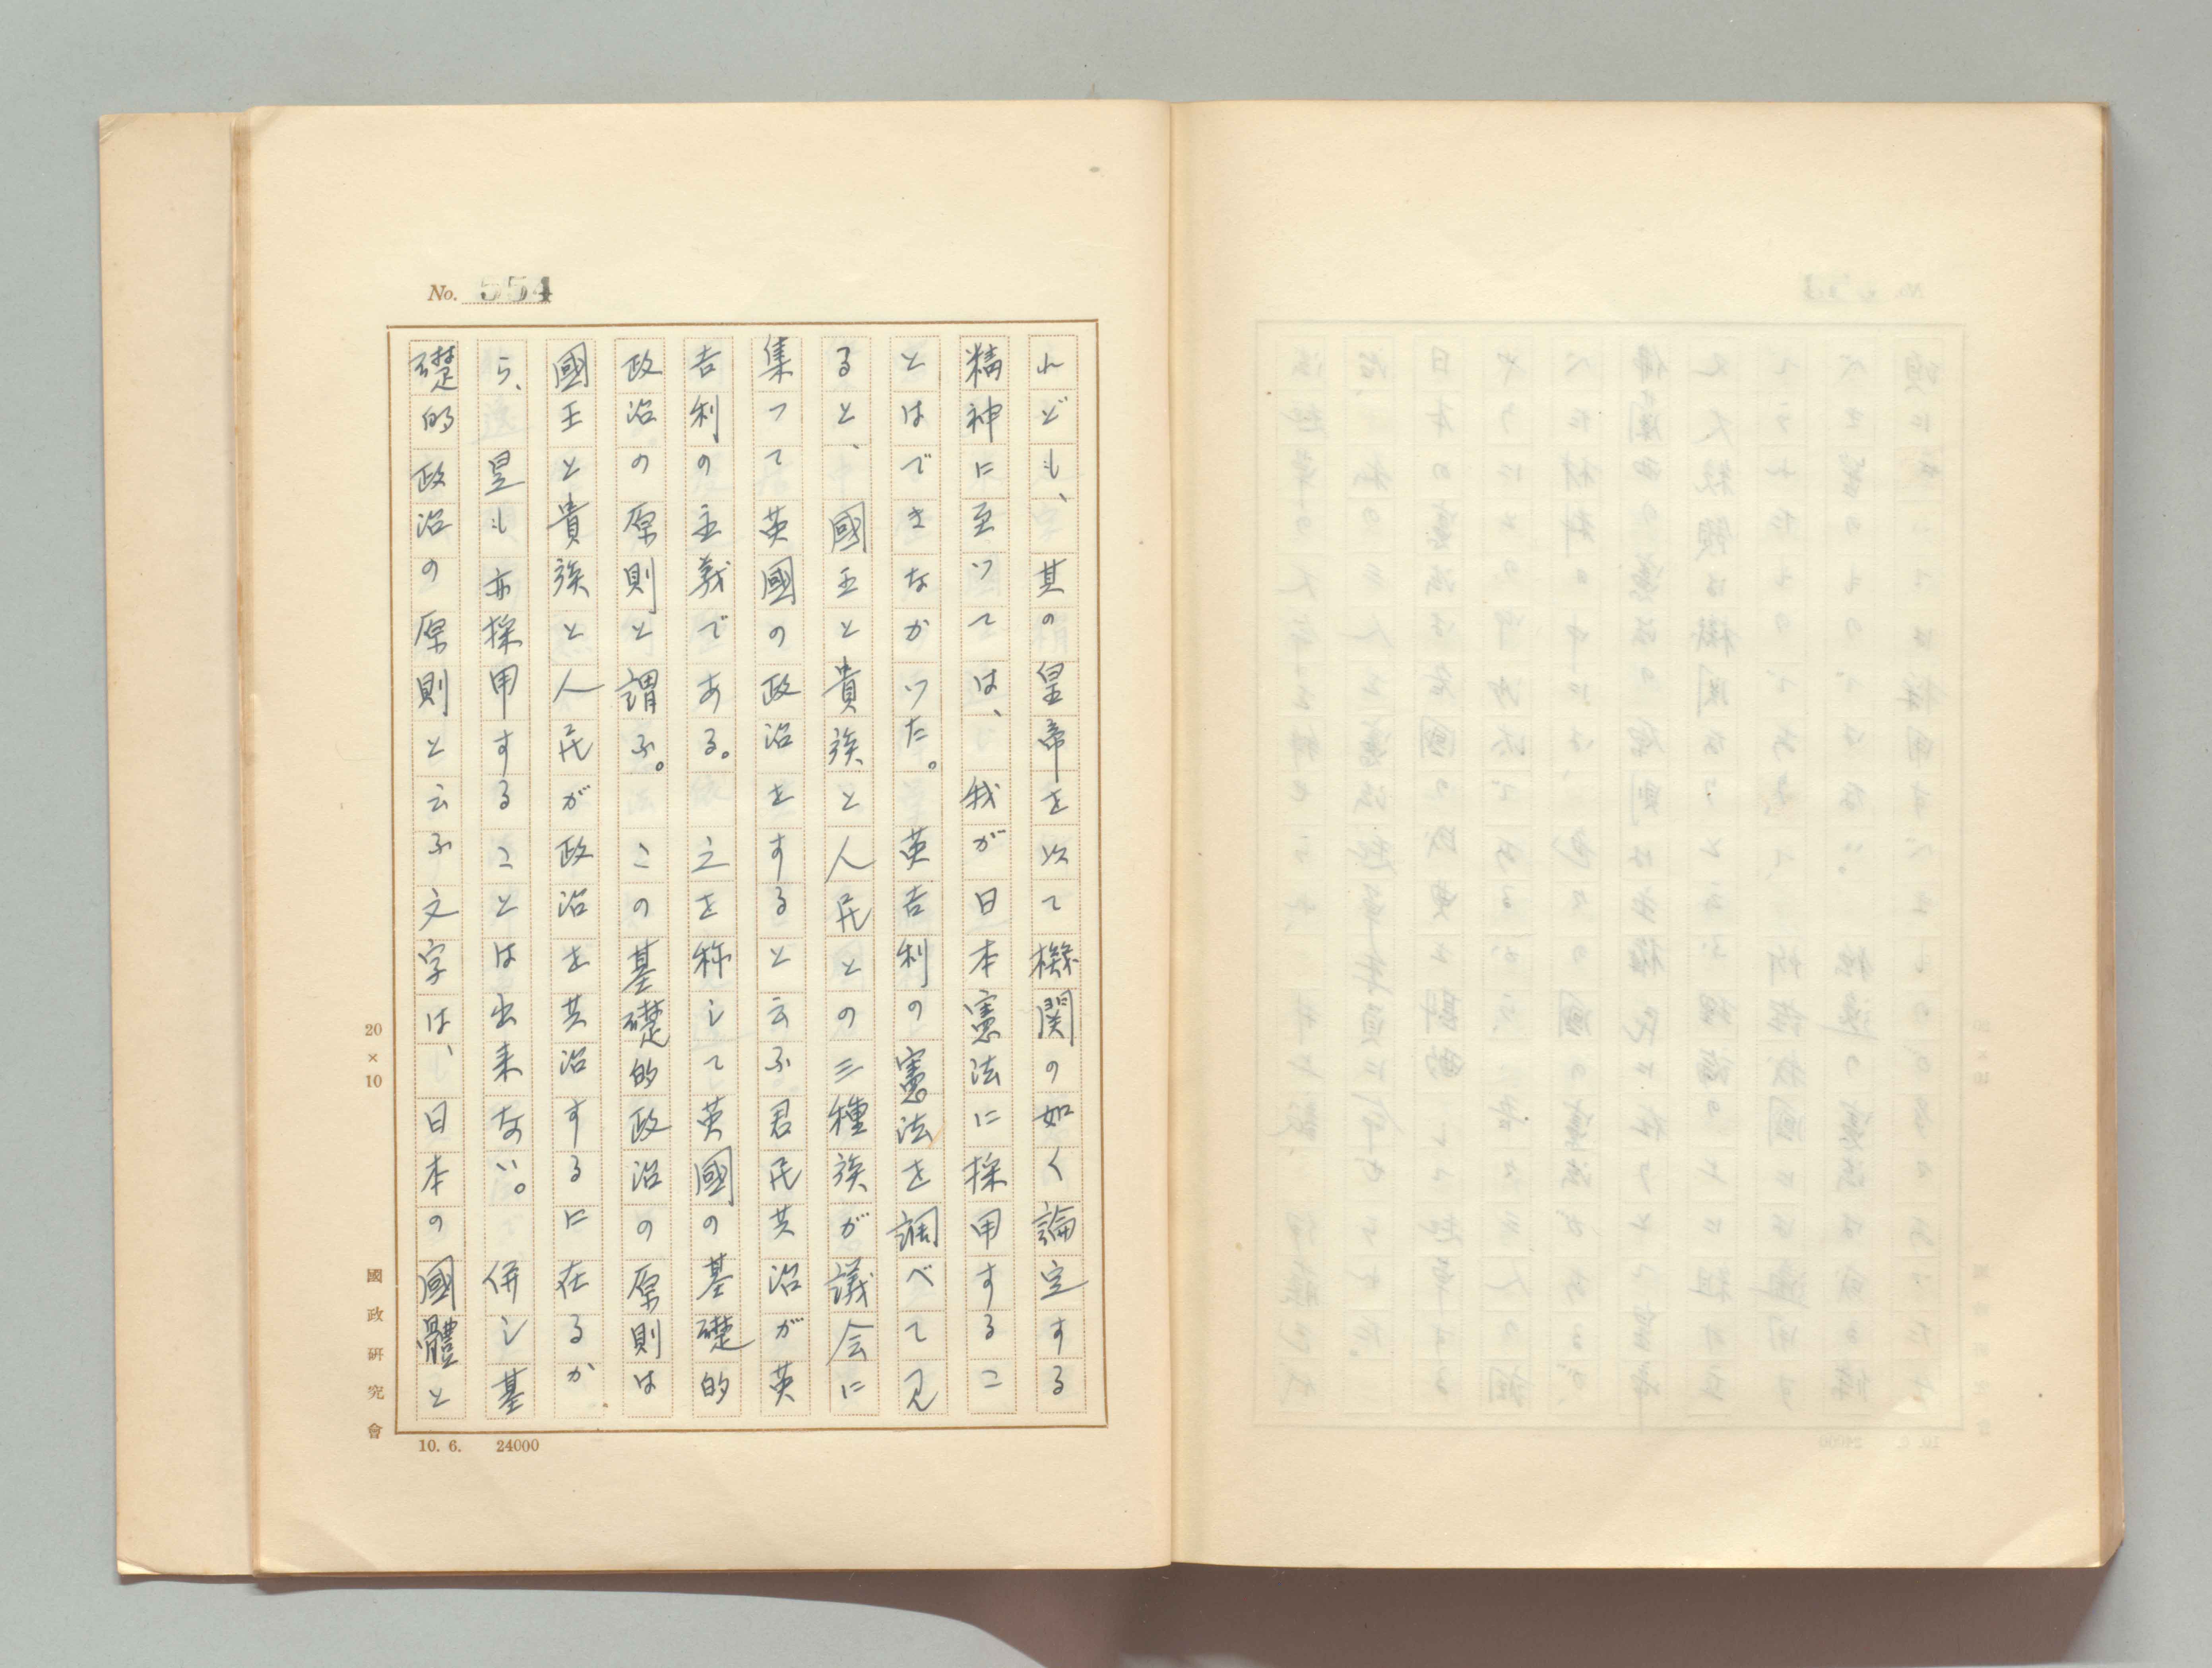 No. 554
れども、其の皇帝を以て機関の如く論定する
精神に至つては、我が日本憲法に採用するこ
とはできなかつた。英吉利の憲法を調べて見
ると、國王と貴族と人民との三種族が議会に
集つて英國の政治をすると云ふ君民共治が英
吉利の主義である。之を称して英國の基礎的
政治の原則と謂ふ。この基礎的政治の原則は
國王と貴族と人民が政治を共治するに在るか
ら、是も亦採用することは出来ない。併し基
礎的政治の原則と云ふ文字は、日本の國體と
20×10
國政研究會
10. 6. 24000